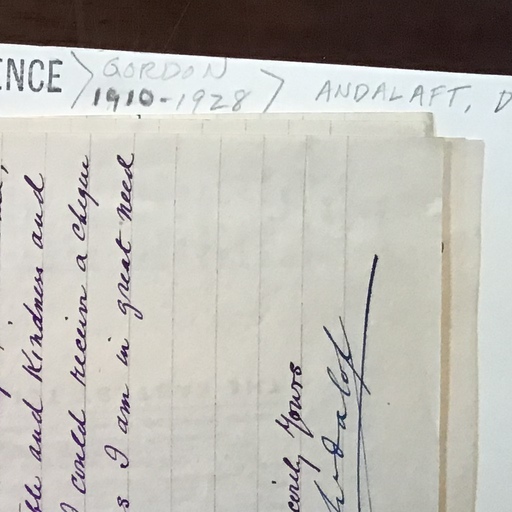 and Kindness and
I could receive a cheque
s I am in great need
Yours
ENCE > GORDON
1910-1928 > ANDALAFT, D